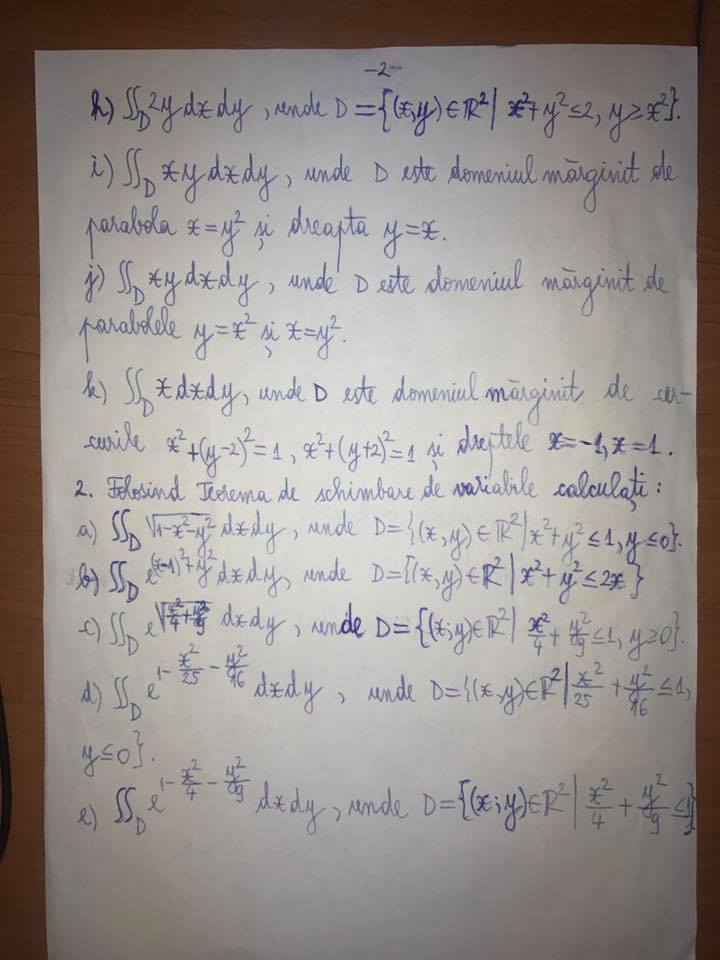 -2-
h) ∬_D 2y dx dy, unde D = {(x,y) ∈ ℝ² | x²+y² ≤ 2, y ≥ x²}.
i) ∬_D xy dx dy, unde D este domeniul mărginit de
parabola x = y² și dreapta y = x.
j) ∬_D xy dx dy, unde D este domeniul mărginit de
parabolele y = x² și x = y².
k) ∬_D x dx dy, unde D este domeniul mărginit de cer-
curile x²+(y-2)²=1, x²+(y+2)²=1 și dreptele x=-1, x=1.
2. Folosind Teorema de schimbare de variabile calculați:
a) ∬_D √(1-x²-y²) dx dy, unde D = {(x,y) ∈ ℝ² | x²+y² ≤ 1, y ≤ 0}.
b) ∬_D e^((x-1)²+y²) dx dy, unde D = {(x,y) ∈ ℝ² | x²+y² ≤ 2x}
c) ∬_D e^√(x²/4+y²/9) dx dy, unde D = {(x,y) ∈ ℝ² | x²/4 + y²/9 ≤ 1, y ≥ 0}.
d) ∬_D e^(1-x²/25-y²/16) dx dy, unde D = {(x,y) ∈ ℝ² | x²/25 + y²/16 ≤ 1,
y ≤ 0}.
e) ∬_D e^(1-x²/4-y²/9) dx dy, unde D = {(x,y) ∈ ℝ² | x²/4 + y²/9 ≤ 1}